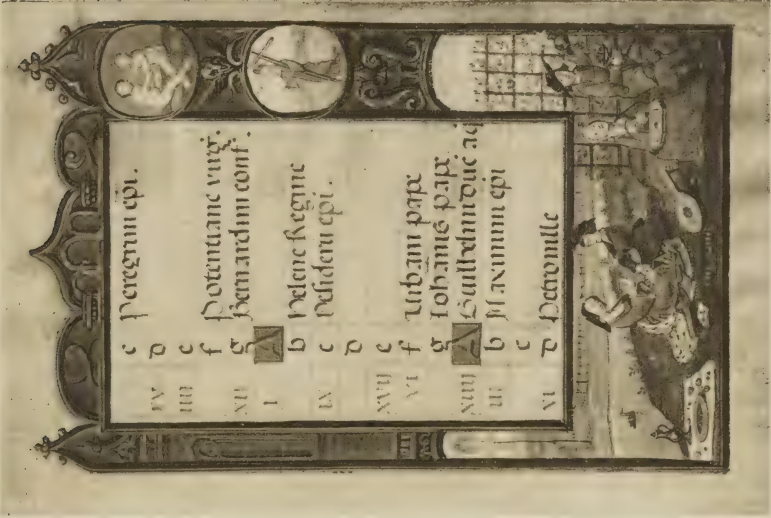 c Peregrini epi.
XV d
IIII e
f Potentiane virg.
XII g Bernardini conf.
I A
b Helene Regine
IX c Desiderii epi.
d
XVII e
VI f Urbani pape
g Iohanis pape
XIIII A Guilhelmi duc aq
III b Maximini epi
c
XI d Petronille